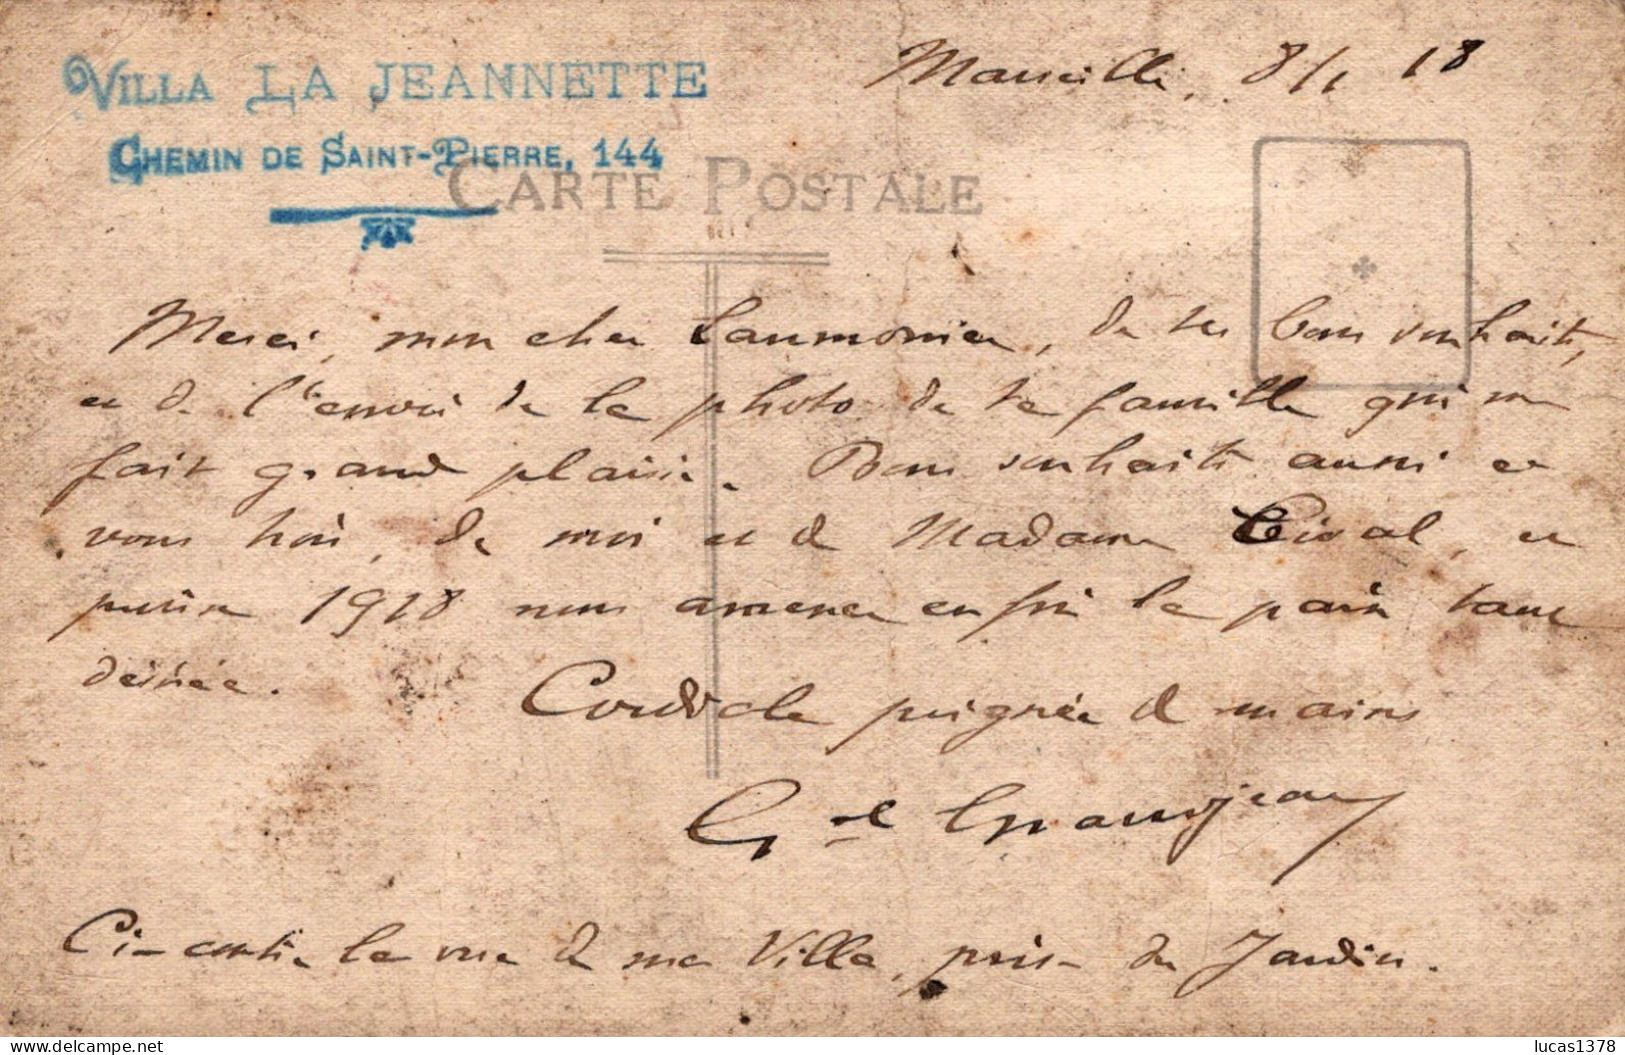 VILLA LA JEANNETTE
CHEMIN DE SAINT-PIERRE, 144
Marseille, 8/1 18
CARTE POSTALE
Merci, mon cher Laumonier, de tes bons souhaits,
et de l'envoi de la photo de ta famille qui me
fait grand plaisir. Bons souhaits aussi et
vous trois, de moi et de Madame, et
puisse 1918 nous amener enfin la paix tant
désirée.
Cordiale poignée de mains
Gal Grandjean
Ci-contre la vue de ma Villa, prise du Jardin.
lucas1378